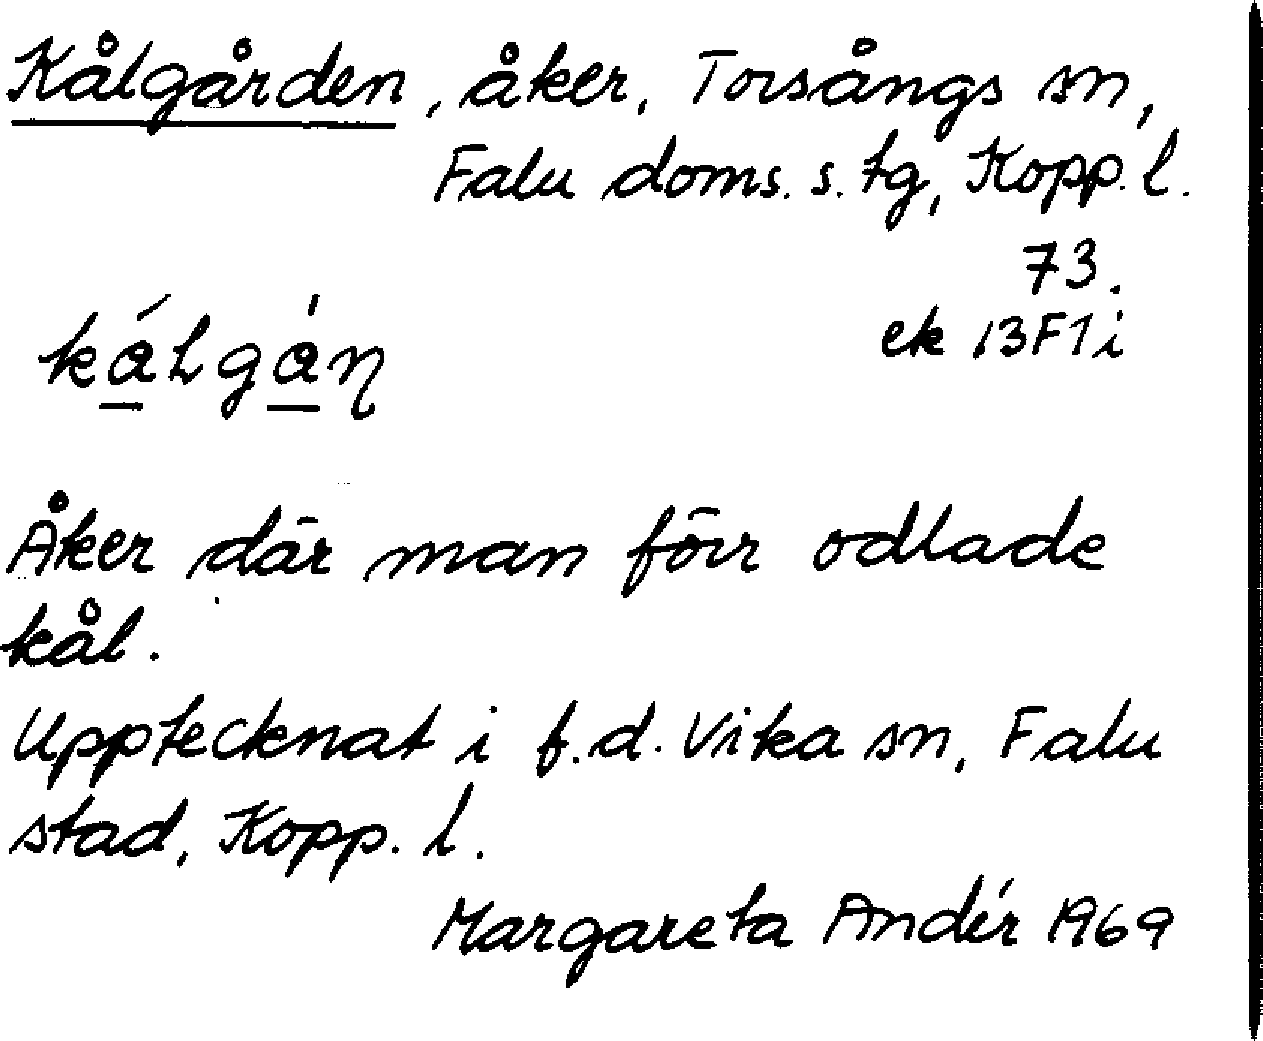 Kålgården, åker, Torsångs sn,
Falu doms. s. tg, Kopp. l.
73.
ek 13F1i
kálgáɳ
Åker där man förr odlade
kål.
Upptecknat i f.d. Vika sn, Falu
stad, Kopp. l.
Margareta Andér 1969